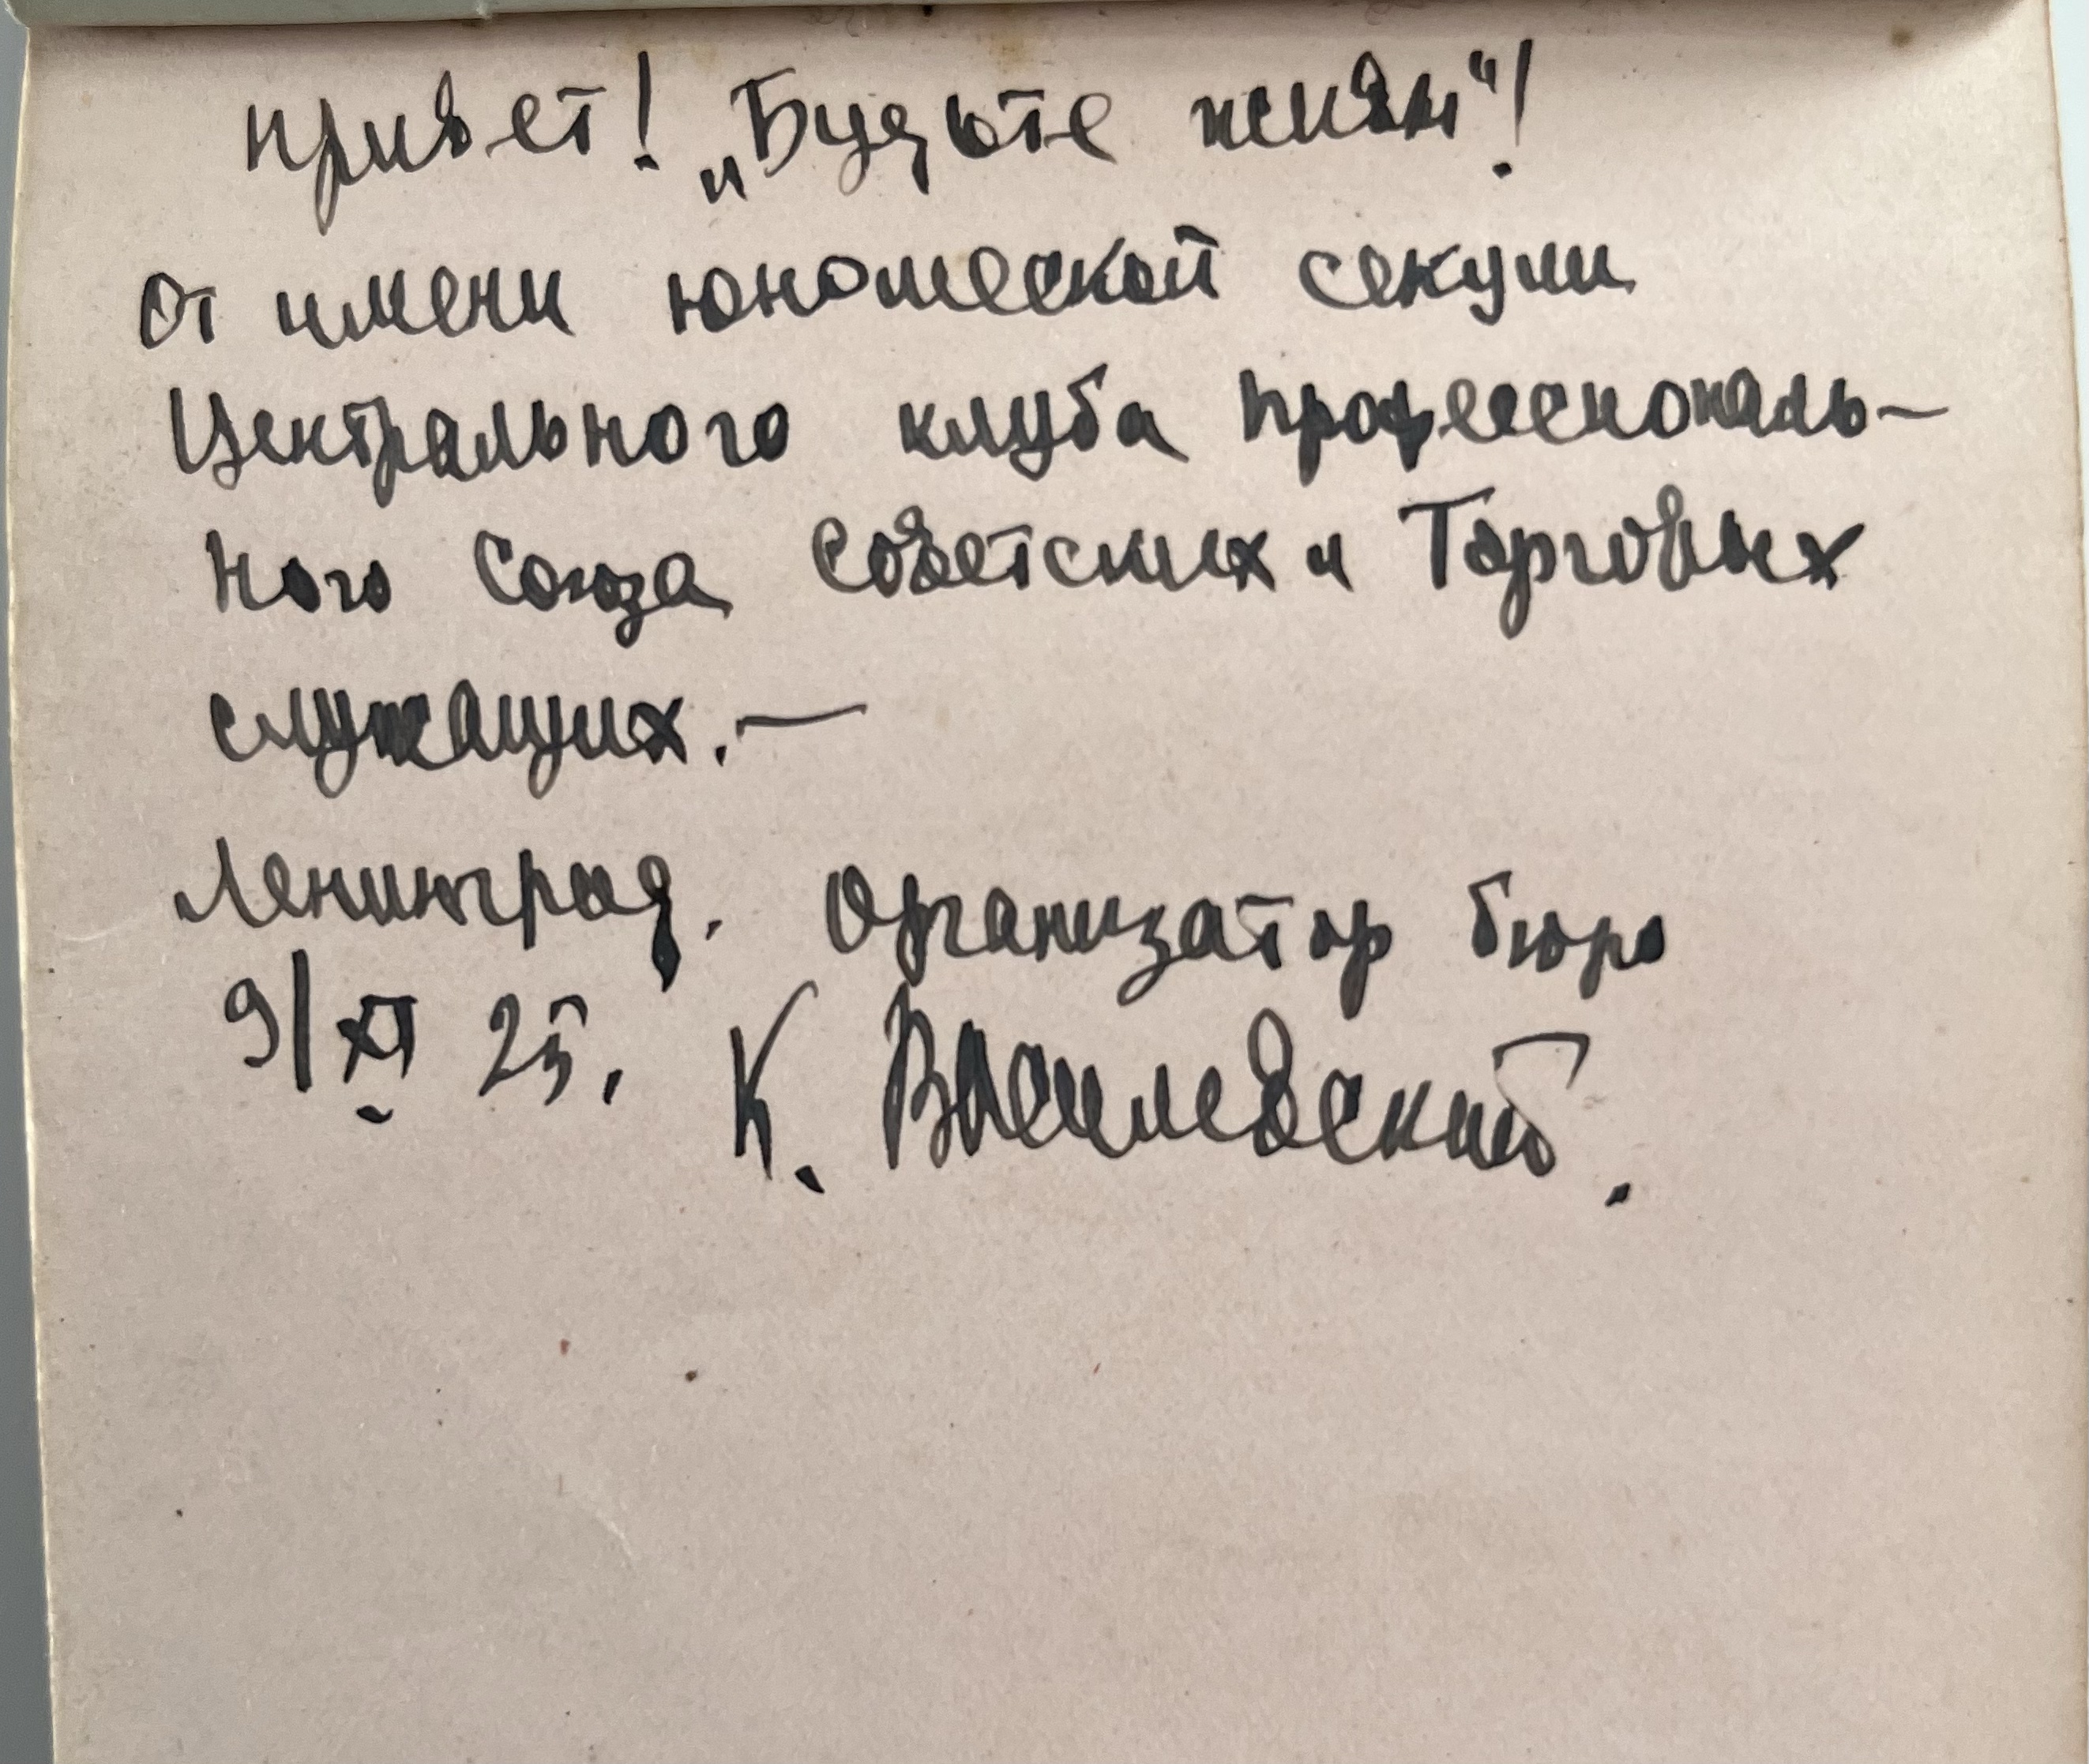 привет! „Будьте живы“!
от имени юношеской секции
Центрального клуба профессиональ-
ного Союза Советских и Торговых
служащих.—
Ленинград. Организатор бюро
9/XI 25. К. Василевский.